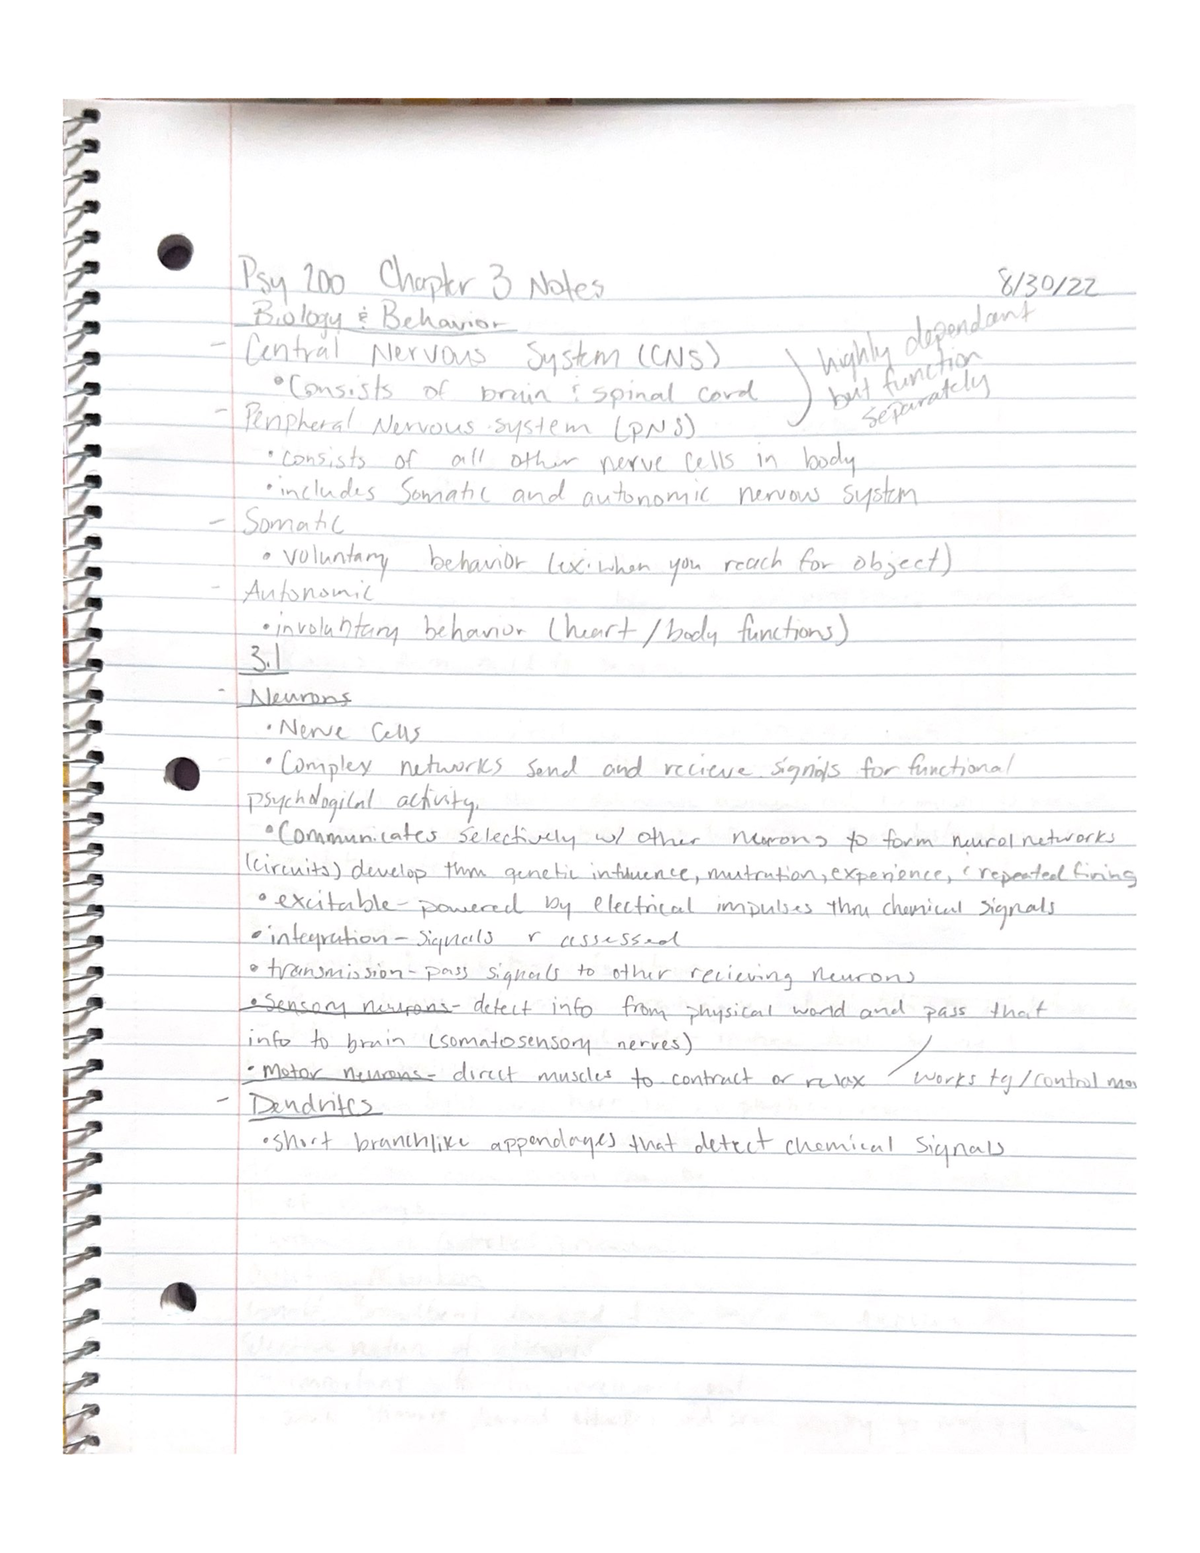 Psy 200 Chapter 3 Notes 8/30/22
Biology & Behavior
- Central Nervous System (CNS)
highly dependant
but function
separately
• Consists of brain & spinal cord
- Peripheral Nervous system (PNS)
• consists of all other nerve cells in body
• includes Somatic and autonomic nervous system
- Somatic
• voluntary behavior (ex. when you reach for object)
- Autonomic
• involuntary behavior (heart/body functions)
3.1
- Neurons
• Nerve Cells
• Complex networks send and recieve signals for functional
psychological activity.
• Communicates selectively w/ other neurons to form neural networks
(circuits) develop thru genetic influence, mutration, experience, & repeated firing
• excitable - powered by electrical impulses thru chemical signals
• integration - signals r assessed
• transmission - pass signals to other recieving neurons
• Sensory neurons - detect info from physical world and pass that
info to brain (somatosensory nerves)
• Motor neurons - direct muscles to contract or relax works tg/control
- Dendrites
• short branchlike appendages that detect chemical signals